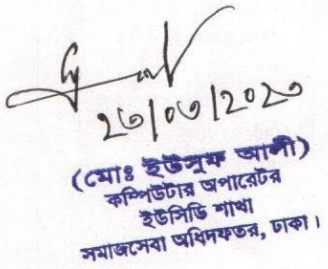 ২৩/০৩/২০২৩
(মোঃ ইউসুফ আলী)
কম্পিউটার অপারেটর
ইউসিডি শাখা
সমাজসেবা অধিদফতর, ঢাকা।